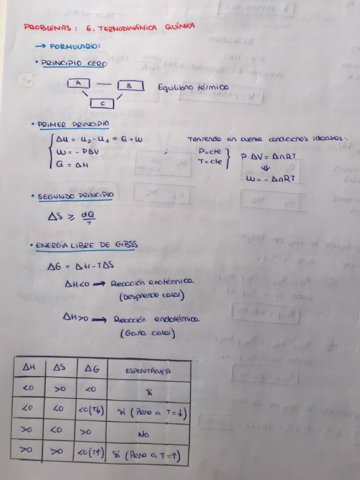 PROBLEMAS: 6. TERMODINÁMICA QUÍMICA
→ FORMULARIO:
• PRINCIPIO CERO
A B Equilibrio térmico
C
• PRIMER PRINCIPIO
ΔU = U₂ - U₁ = Q + W
W = - PΔV
Q = ΔH
Teniendo en cuenta condiciones ideales:
P=cte
T=cte
P·ΔV = ΔnRT
↓
W = - ΔnRT
• SEGUNDO PRINCIPIO
ΔS ≥ dQ/T
• ENERGÍA LIBRE DE GIBBS
ΔG = ΔH - TΔS
ΔH<0 → Reacción exotérmica
(Desprende calor)
ΔH>0 → Reacción endotérmica
(Gana calor)
ΔH ΔS ΔG ESPONTÁNEA
<0 >0 <0 Sí
<0 <0 <0(T↓) Sí (Pero a T=↓)
>0 <0 >0 No
>0 >0 <0(T↑) Sí (Pero a T=↑)